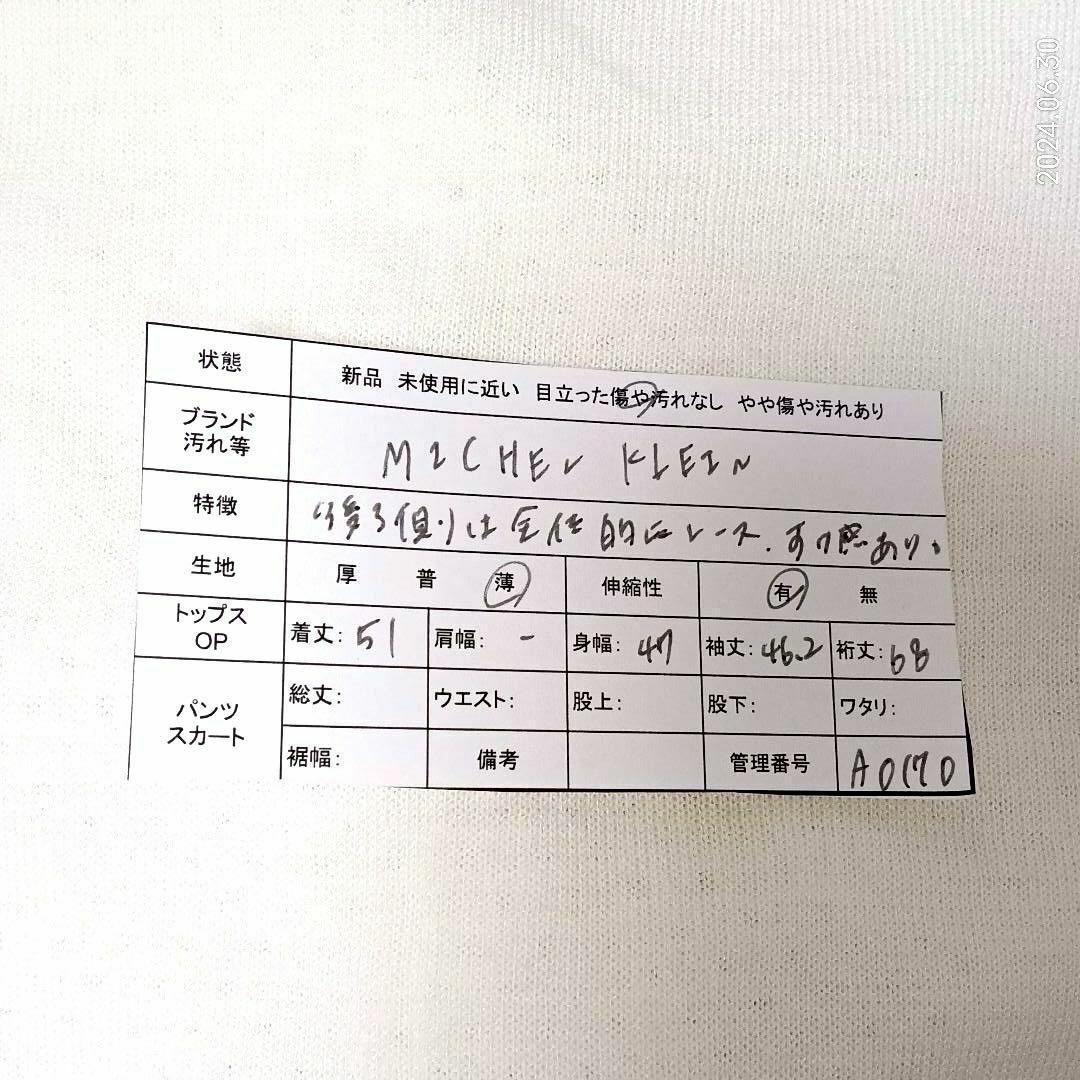 2024.06.30
状態 新品 未使用に近い 目立った傷や汚れなし やや傷や汚れあり
ブランド
汚れ等 MICHEL KLEIN
特徴 後ろ側は全体的にレース。すけ感あり。
生地 厚 普 薄 伸縮性 有 無
トップス
OP 着丈: 51 肩幅: - 身幅: 47 袖丈: 46.2 裄丈: 68
パンツ
スカート 総丈: ウエスト: 股上: 股下: ワタリ:
裾幅: 備考 管理番号 A0170